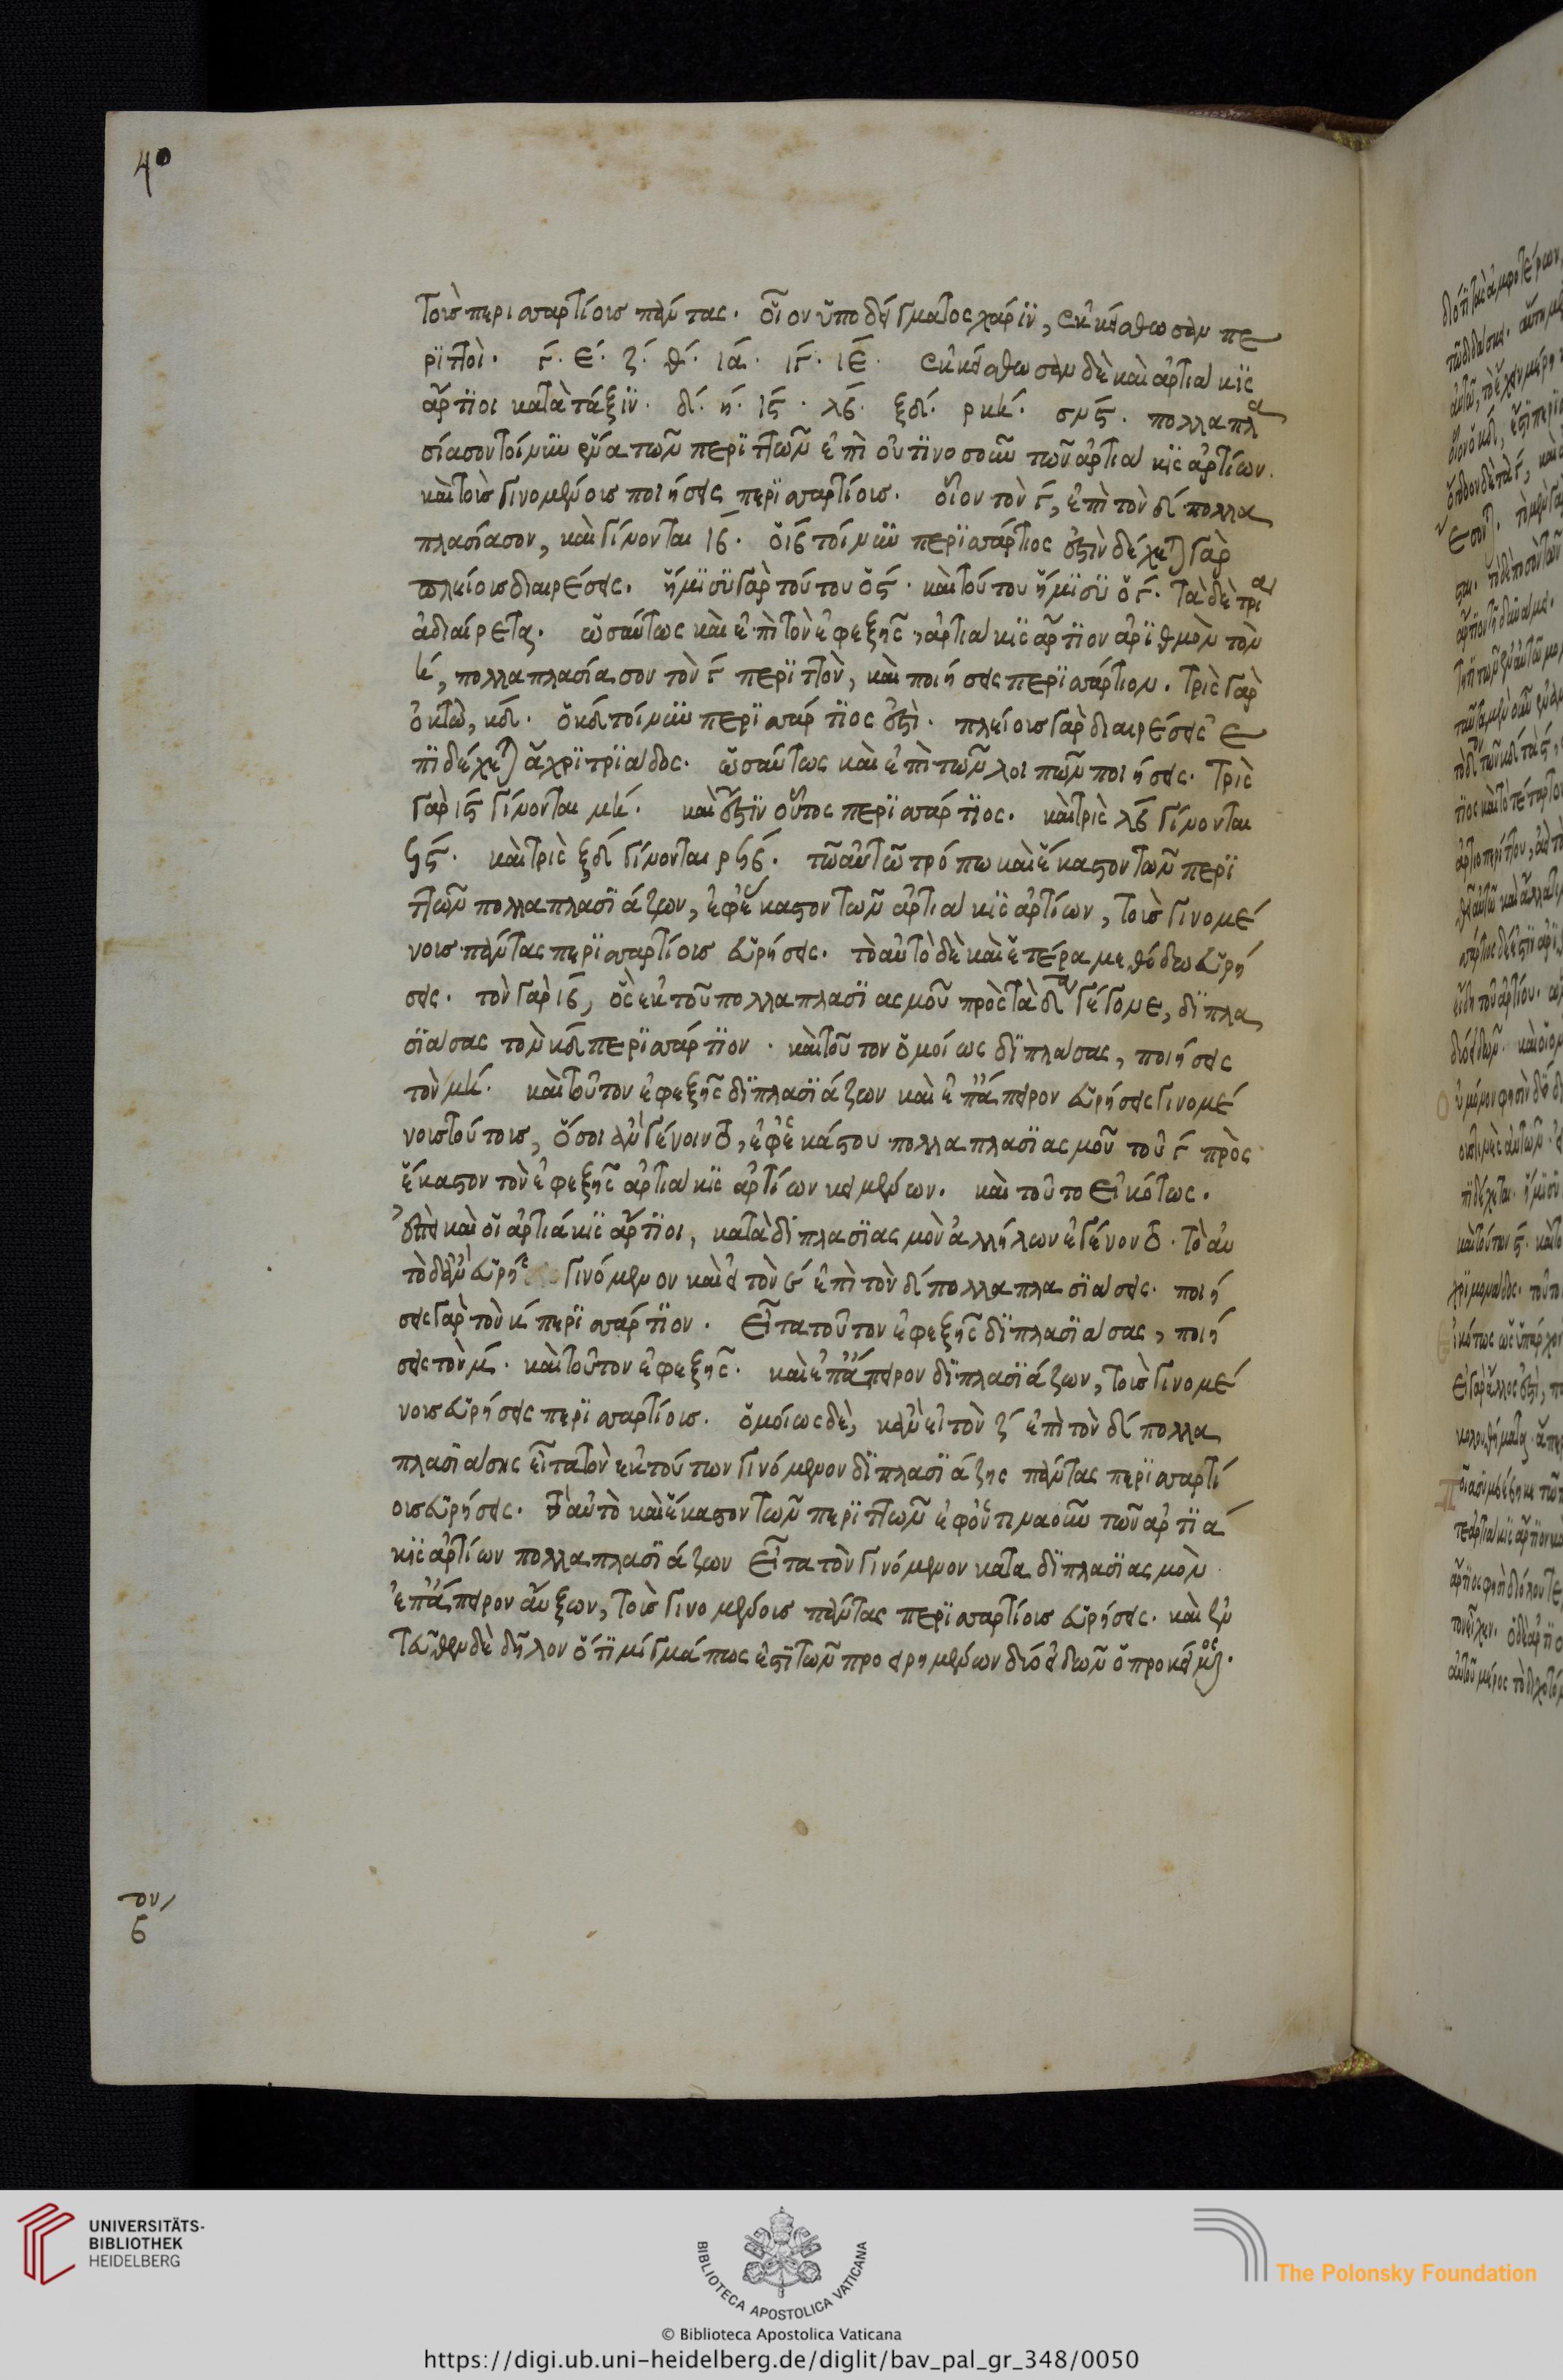 40
τοὺς περισσαρτίους πάντας. οἷον ὑποδείγματος χάριν, ἐκκείσθωσαν πε
ριττοὶ. γ. ε. ζ. θ. ια. ιγ. ιε. ἐκκείσθωσαν δὲ καὶ ἀρτιάκις
ἄρτιοι κατὰ τάξιν. δ. η. ις. λβ. ξδ. ρκη. σνς. πολλαπλα
σίασον τοίνυν ἕνα τῶν περιττῶν ἐπὶ οὑτινοσοῦν τῶν ἀρτιάκις ἀρτίων.
καὶ τοὺς γινομένους ποιήσεις περισσαρτίους. οἷον τὸν γ, ἐπὶ τὸν δ πολλα
πλασίασον, καὶ γίνονται ιβ. ὁ ιβ τοίνυν περισσάρτιος ἐστὶν δέχεται γὰρ
πλείους διαιρέσεις. ἥμισυ γὰρ τούτου ὁ ς. καὶ τούτου ἥμισυ ὁ γ. τὰ δὲ τρία
ἀδιαίρετα. ὡσαύτως καὶ ἐπὶ τὸν ἐφεξῆς, ἀρτιάκις ἄρτιον ἀριθμὸν τὸν
η, πολλαπλασίασον τὸν γ περιττὸν, καὶ ποιήσεις περισσάρτιον. τρὶς γὰρ
ὀκτὼ, κδ. ὁ κδ τοίνυν περισσάρτιος ἐστὶ. πλείους γὰρ διαιρέσεις ἐ
πιδέχεται ἄχρι τριάδος. ὡσαύτως καὶ ἐπὶ τῶν λοιπῶν ποιήσεις. τρὶς
γὰρ ις γίνονται μη. καὶ ἔστιν οὗτος περισσάρτιος. καὶ τρὶς λβ γίνονται
ϟς. καὶ τρὶς ξδ γίνονται ρϟβ. τῶ αὐτῶ τρόπω καὶ ἕκαστον τῶν περι
ττῶν πολλαπλασιάζων, ἐφ' ἕκαστον τῶν ἀρτιάκις ἀρτίων, τοὺς γινομέ
νους πάντας περισσαρτίους εὑρήσεις. τὸ αὐτὸ δὲ καὶ ἑτέρα μεθόδω εὑρή
σεις. τὸν γὰρ ιβ, ὃς ἐκ τοῦ πολλαπλασιασμοῦ πρὸς τὰ δ γέγονε, διπλα
σιάσας τὸν κδ περισσάρτιον. καὶ τοῦτον ὁμοίως διπλάσας, ποιήσεις
τὸν μη. καὶ τοῦτον ἐφεξῆς διπλασιάζων καὶ ἐπ' ἄπειρον εὑρήσεις γινομέ
νους τούτους, ὅσοι ἂν γένοιντο, ἐφ' ἑκάστου πολλαπλασιασμοῦ τοῦ γ πρὸς
ἕκαστον τὸν ἐφεξῆς ἀρτιάκις ἀρτίων κειμένων. καὶ τοῦτο εἰκότως.
ἐπεὶ καὶ οἱ ἀρτιάκις ἄρτιοι, κατὰ διπλασιασμὸν ἀλλήλων ἐγένοντο. τὸ αὐ
τὸ δ' ἂν εὑρῆς γινόμενον καὶ εἰ τὸν ε ἐπὶ τὸν δ πολλαπλασιάσεις. ποιή
σεις γὰρ τὸν κ περισσάρτιον. εἶτα τοῦτον ἐφεξῆς διπλασιάσας, ποιή
σεις τὸν μ. καὶ τοῦτον ἐφεξῆς. καὶ ἐπ' ἄπειρον διπλασιάζων, τοὺς γινομέ
νους εὑρήσεις περισσαρτίους. ὁμοίως δὲ, κἂν εἰ τὸν ζ ἐπὶ τὸν δ πολλα
πλασιάσης εἶτα τὸν ἐκ τούτων γινόμενον διπλασιάζης πάντας περισσαρτί
ους εὑρήσεις. τὸ αὐτὸ καὶ ἕκαστον τῶν περιττῶν ἐφ' ὅντιναοῦν τῶν ἀρτιά
κις ἀρτίων πολλαπλασιάζων εἶτα τὸν γινόμενον κατα διπλασιασμὸν
ἐπ' ἄπειρον αὔξων, τοὺς γινομένους πάντας περισσαρτίους εὑρήσεις. καὶ ἐν
τεῦθεν δὲ δῆλον ὅτι μίγμά πως ἐστὶ τῶν προειρημένων δύο εἰδῶν ὁ προκείμενος.
UNIVERSITÄTS-
BIBLIOTHEK
HEIDELBERG
BIBLIOTECA APOSTOLICA VATICANA
The Polonsky Foundation
© Biblioteca Apostolica Vaticana
https://digi.ub.uni-heidelberg.de/diglit/bav_pal_gr_348/0050